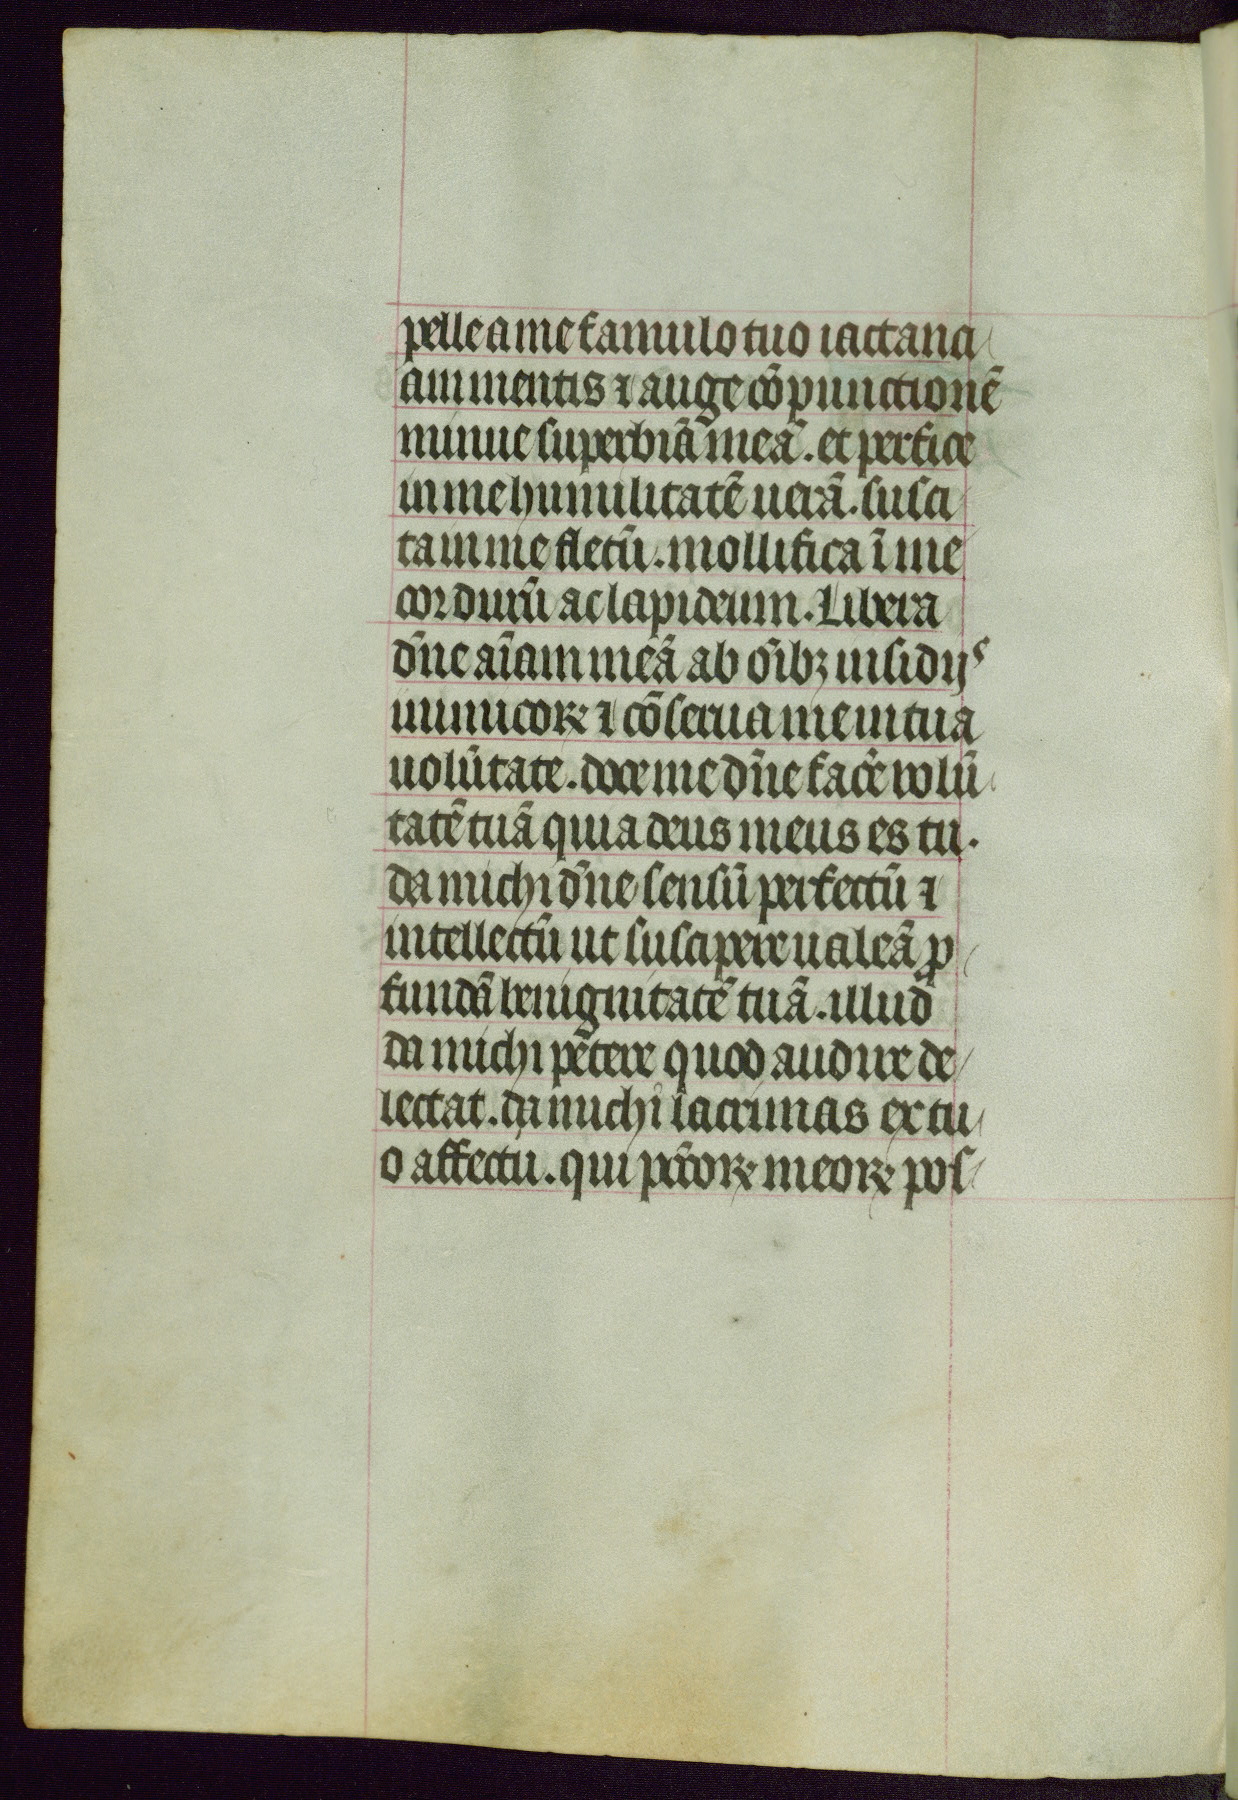 pelle a me famulo tuo iactanci
am mentis ⁊ auge cōpunctionē
minue superbiā meā. et perfice
in me humilitatē uerā. susci
ta in me fletū. mollifica ī me
cor durū ac lapideum. Libera
dn̄e aīam meā ab oīb; insidijs
inimicoꝝ ⁊ cōserua me in tua
uolūtate. doce me dn̄e facē̄ volū
tatē tuā quia deus meus es tu.
da michi dn̄e sensū perfectū ⁊
intellectū ut suscipere ualeā ꝓ
fundā benignitatē tuā. illud
da michi petere quod audire de
lectat. da michi lacrimas ex tu
o affectu. qui pcc̄oꝝ meoꝝ pos